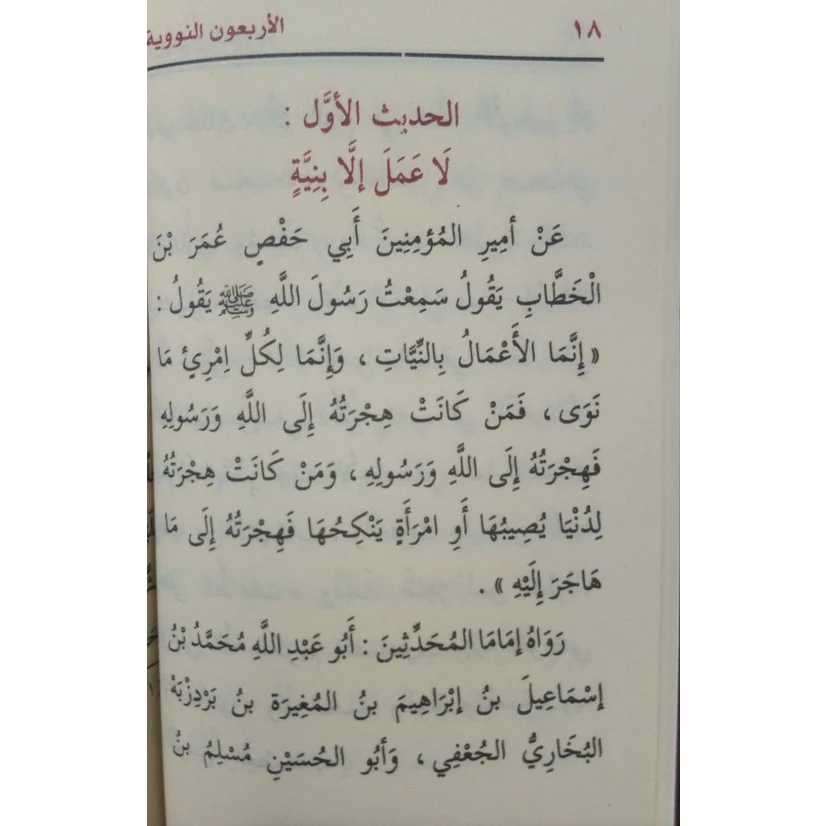 ١٨ الأربعون النووية
الحديث الأوَّل :
لَا عَمَلَ إلَّا بِنِيَّةٍ
عَنْ أمِيرِ المُؤمِنِينَ أَبِي حَفْصٍ عُمَرَ بْنَ
الْخَطَّابِ يَقُولُ سَمِعْتُ رَسُولَ اللَّهِ ﷺ يَقُولُ :
« إنَّمَا الأَعْمَالُ بِالنِّيَّاتِ ، وَإنَّمَا لِكُلِّ اِمْرِئ مَا
نَوَى ، فَمَنْ كَانَتْ هِجْرَتُهُ إلَى اللَّهِ وَرَسُولِهِ
فَهِجْرَتُهُ إلَى اللَّهِ وَرَسُولِهِ ، وَمَنْ كَانَتْ هِجْرَتُهُ
لِدُنْيَا يُصِيبُهَا أَوِ امْرَأَةٍ يَنْكِحُهَا فَهِجْرَتُهُ إلَى مَا
هَاجَرَ إلَيْهِ » .
رَوَاهُ إمَامَا المُحَدِّثِينَ : أَبُو عَبْدِ اللَّهِ مُحَمَّدُ بْنُ
إسْمَاعِيلَ بنُ إبْرَاهِيمَ بنُ المُغِيرَة بنُ بَرْدِزْبَهْ
البُخَارِيُّ الجُعْفِي ، وَأبُو الحُسَيْنِ مُسْلِمُ بنُ